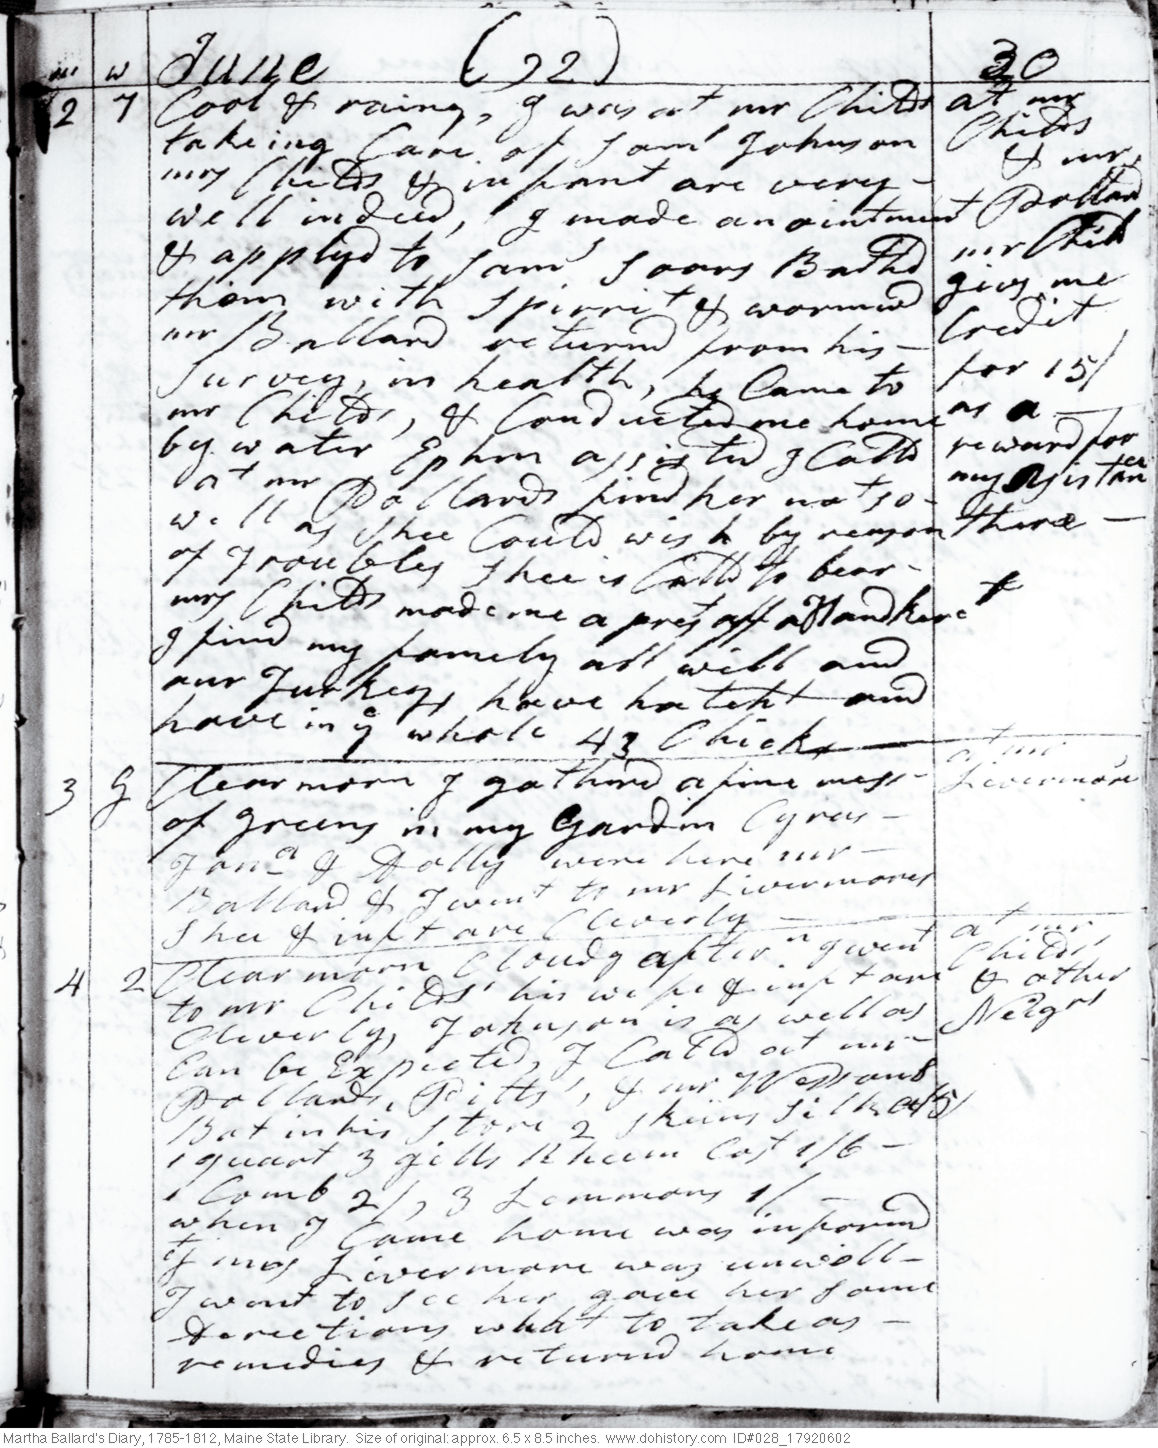 m w June (92) 30
2 7 Cool & rainy, I was at mr Childs
takeing Care of Saml Johnson
mrs Childs & infant are very -
well indeed, I made an ointment
& applyd to Saml Soars Bathd
them with Spirrit & wormwd
mr Ballard returnd from his -
Survey, in health, he Came to
mr Childs', & Conducted me home
by water Ephm assisted I Calld
at mr Pollards find her not so -
well as Shee Could wish by reason
of Troubles Shee is Calld to bear -
mrs Childs made me a prest off a Handkerct
I find my famely all well and
our Turkeys have hatcht and
have in ye whole 43 Chicks
at mr
Childs
& mr
Pollard
mr Child
givs me
Credit
for 15/
as a
reward for
my Asistance
there -
3 G Clear morn I gathird a fine mess -
of greens in my Gardin Cyrus -
Jona & Dolly were here mr -
Ballard & I went to mr Livermores
Shee & inft are Cleverly -
at mr
Livermore
4 2 Clear morn Cloudy aftern I went
to mr Childs' his wife & inft are
Cleverly, Johnson is as well as
Can be Expected, I Calld at mr -
Pollards, Pitts', & mr Wessons
Bot in his Store 2 Skeins Silk a/5/
1 quart 3 gills Rheum Cost 1/6 -
1 Comb 2/, 3 Lemmons 1/ -
when I Came home was informd
yt mrs Livermore was unwell -
I went to see her gave her some
Derections whht to take as -
remedies & returnd home
at mr
Childs'
& other
Neigrs
Martha Ballard's Diary, 1785-1812, Maine State Library. Size of original: approx. 6.5 x 8.5 inches. www.dohistory.com ID#028_17920602